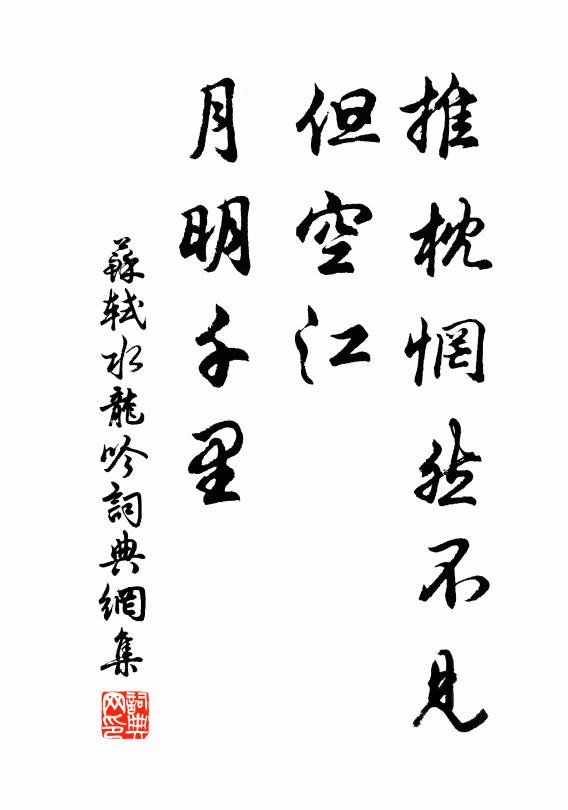 推枕惘然不見
但空江
月明千里
蘇軾水龍吟詞典網集
詞典网印